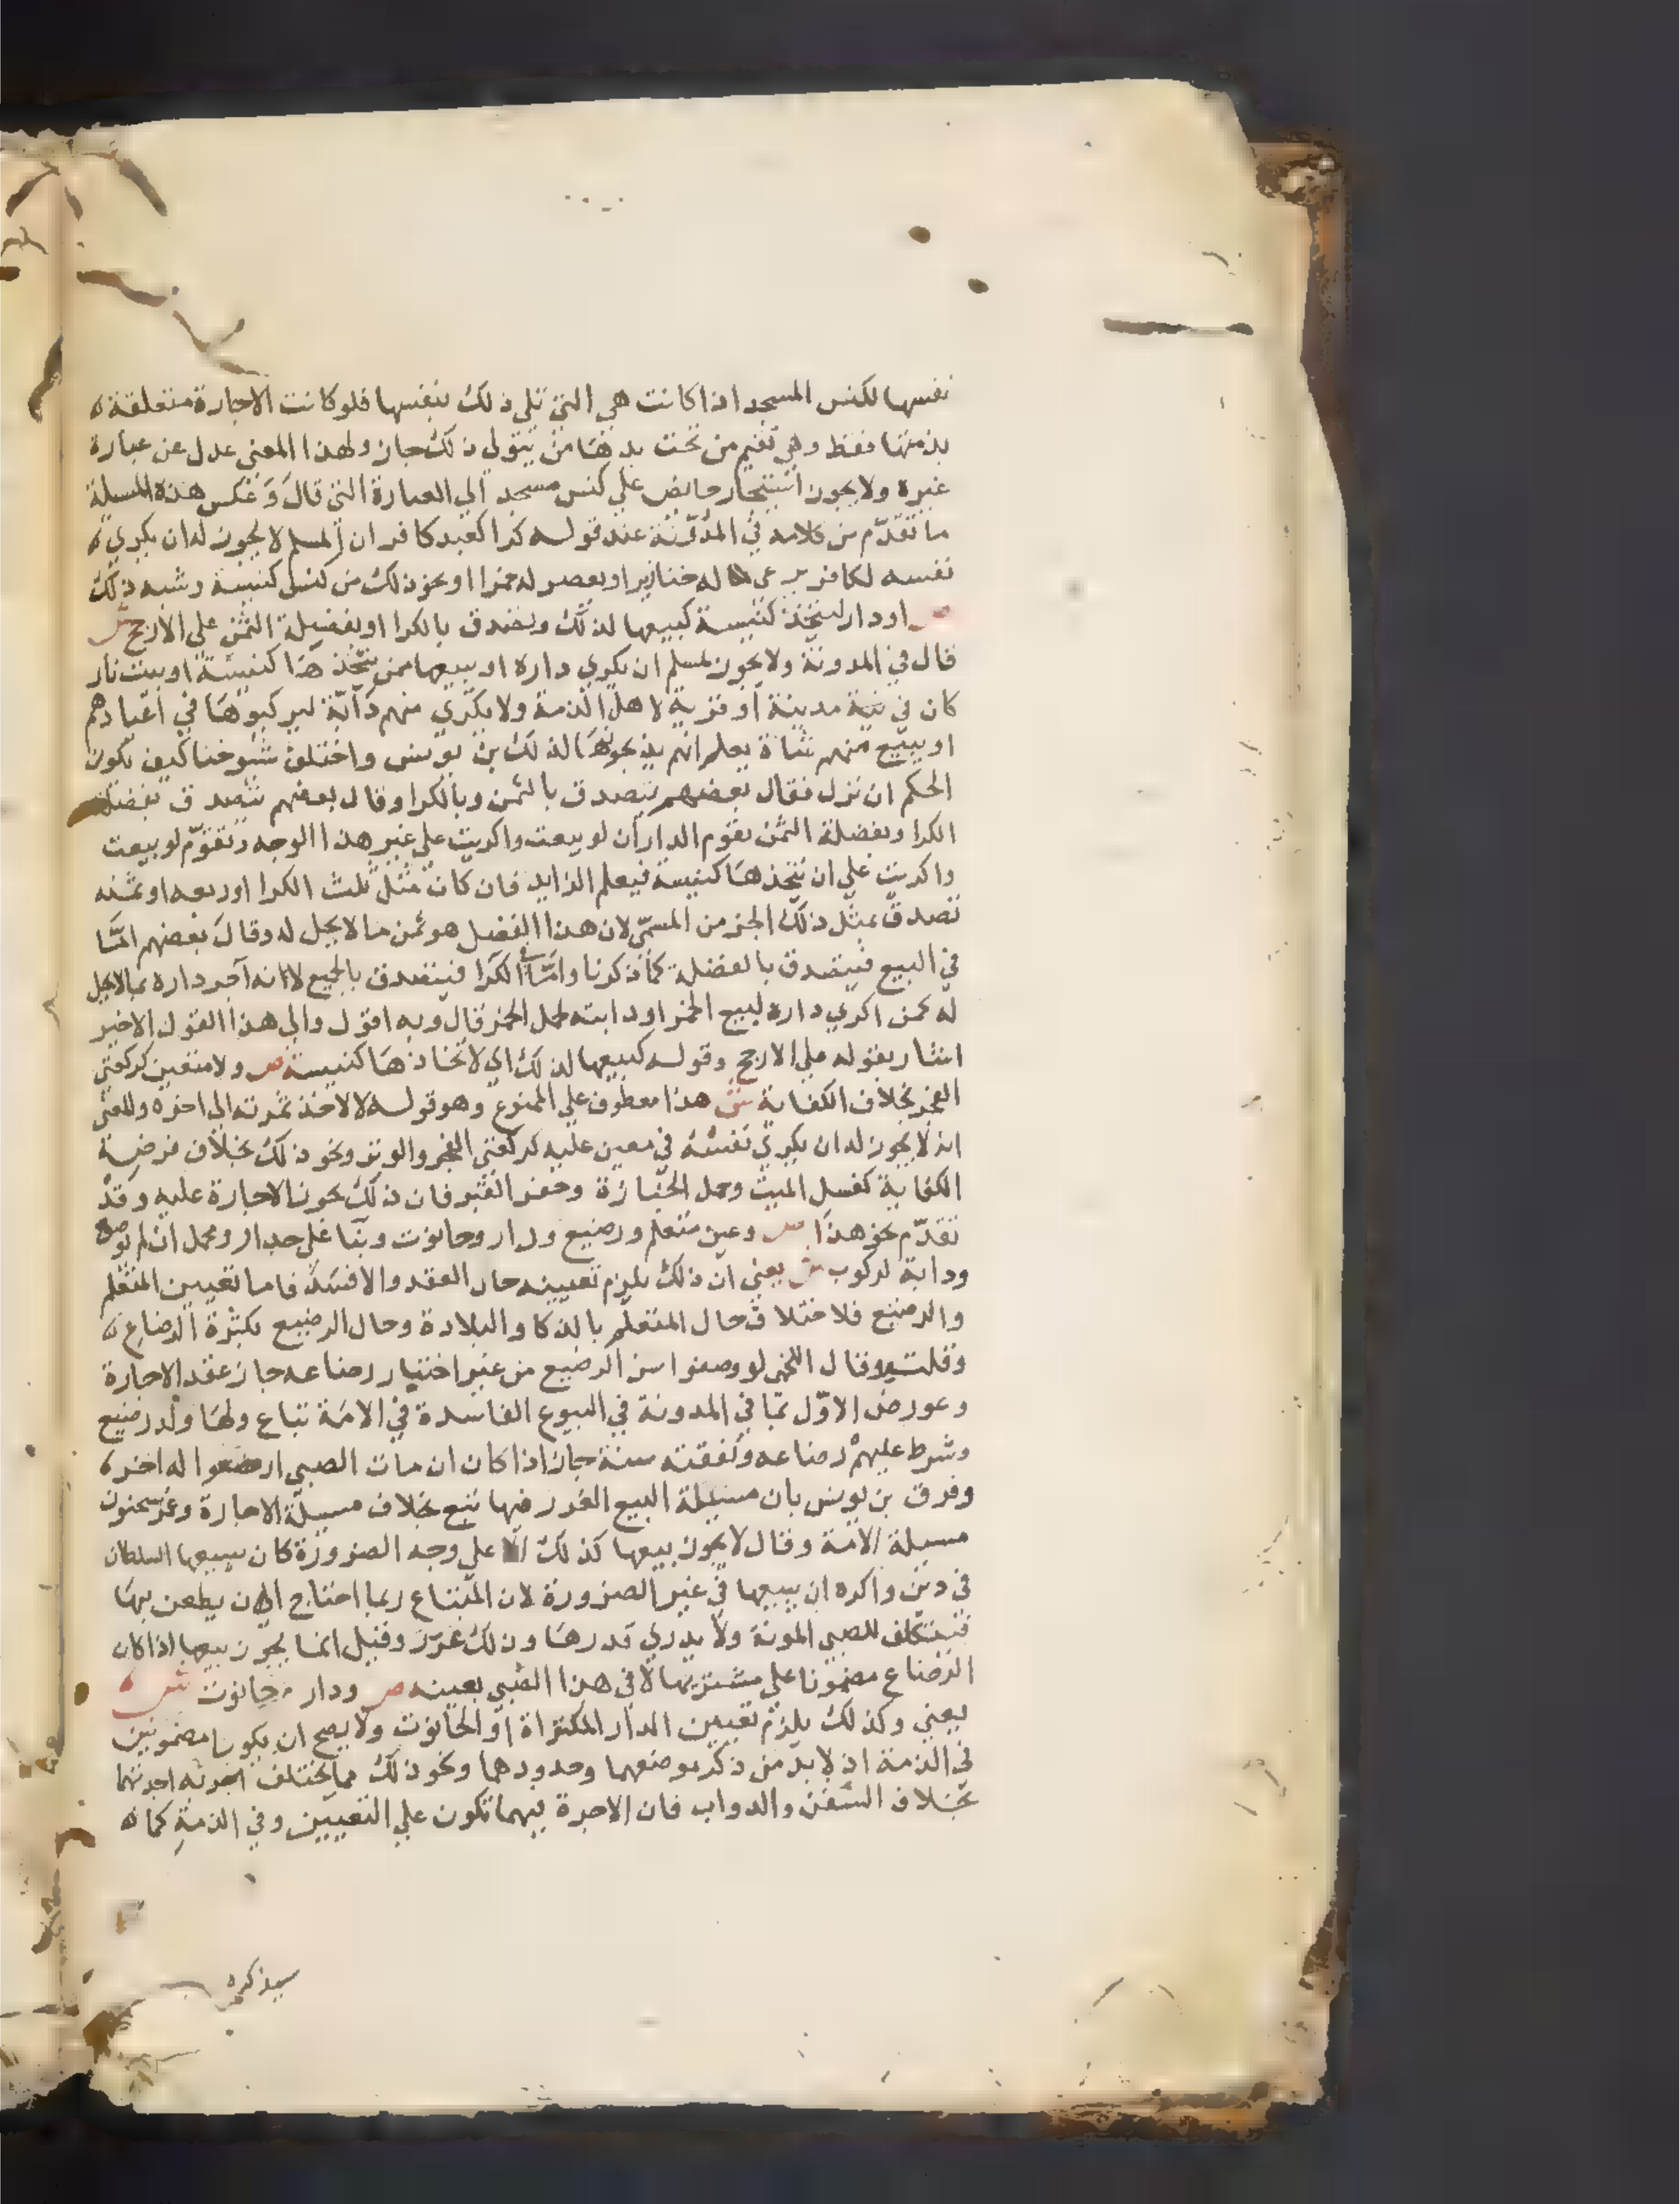 نفسها لكنس المسجد اذا كانت هي التي تلي ذلك بنفسها فلو كانت الاجارة متعلقة
بذمتها فقط وهي تقيم من تحت يدها من يتولى ذلك جاز ولهذا المعني عدل عن عبارة
غيره ولا يجوز استيجار حايض علي كنس مسجد الي العبارة التي قال وعكس هذه المسيلة
ما تقدم من كلامه في المدونة عند قوله كرا كعبد كافر ان المسلم لا يجوز له ان يكري
نفسه لكافر يرعى له خنازير او يعصر له خمرا او نحو ذلك من كنس كنيسة وشبه ذلك
ص او دار لتتخذ كنيسة كبيعها لذلك ويتصدق بالكرا او بفضيلة الثمن علي الارجح ش
قال في المدونة ولا يجوز لمسلم ان يكري داره او يبيعها ممن يتخذها كنيسة او بيت نار
كان في نية مدينة او قرية لاهل الذمة ولا يكري منهم دابة ليركبوها في اعيادهم
او يبيع منهم شاة يعلم انهم يذبحونها لذلك بن يونس واختلف شيوخنا كيف يكون
الحكم ان نزل فقال بعضهم يتصدق بالثمن وبالكرا وقال بعضهم يتصدق بفضلة
الكرا وبفضلة الثمن يقوم الدار ان لو بيعت واكريت علي غير هذا الوجه وتقوم لو بيعت
واكريت علي ان يتخذها كنيسة فيعلم الزايد فان كان مثل ثلث الكرا او ربعه او ثمنه
تصدق بمثل ذلك الجز من المسمي لان هذا الفضل هو ثمن ما لا يحل له وقال بعضهم امّا
في البيع فيتصدق بالفضلة كما ذكرنا وامّا في الكرا فيتصدق بالجميع لانه آجر داره بما لا يحل
له كمن اكري داره لبيع الخمر او دابته لحمل الخمر قال وبه اقول والي هذا القول الاخير
اشار بقوله علي الارجح وقوله كبيعها لذلك اي لاتخاذها كنيسة ص ولا متعين كركعتي
الفجر بخلاف الكفاية ش هذا معطوف علي الممنوع وهو قوله لا لاخذ ثمرته الي اخره والمعني
انه لا يجوز له ان يكري نفسه في معين عليه كركعتي الفجر والوتر ونحو ذلك بخلاف فرضية
الكفاية كغسل الميت وحمل الجنازة وحفر القبر فان ذلك يجوز الاجارة عليه وقد
تقدّم نحو هذا ص وعين متعلم ورضيع ودار وحانوت وبنا علي جدار ومحمل ان لم توصف
ودابة لركوب ش يعني ان ذلك يلزم تعيينه حال العقد والا فسد فاما تعيين المتعلم
والرضيع فلاختلاف حال المتعلم بالذكا والبلادة وحال الرضيع بكثرة الرضاع
وقلته وقال اللخمي لو وصفوا سن الرضيع من غير اختبار رضاعه جاز عقد الاجارة
وعورض الاوّل بما في المدونة في البيوع الفاسدة في الامة تباع ولها ولد رضيع
وشرط عليهم رضاعه ونفقته سنة جاز اذا كان ان مات الصبي ارضعوا له اخر
وفرق بن يونس بان مسيلة البيع الغرر فيها تبع بخلاف مسيلة الاجارة وعن سحنون
مسيلة الامة وقال لا يجوز بيعها كذلك الا علي وجه الضرورة كان يبيعها السلطان
في دين واكره ان يبيعها في غير الضرورة لان المبتاع ربما احتاج الي ان يظعن بها
فيتكلف للصبي المونة ولا يدري قدرها وذلك غرر وقيل انما يجوز بيعها اذا كان
الرضاع مضمونا علي مشتريها لا في هذا الصبي بعينه ص ودار وحانوت ش
يعني وكذلك يلزم تعيين الدار المكتراة او الحانوت ولا يصح ان يكونا مضمونين
في الذمة اذ لا بد من ذكر موضعهما وحدودهما ونحو ذلك مما يختلف به اجرتهما
بخلاف السفن والدواب فان الاجرة فيهما تكون علي التعيين وفي الذمة كما
سيذكره